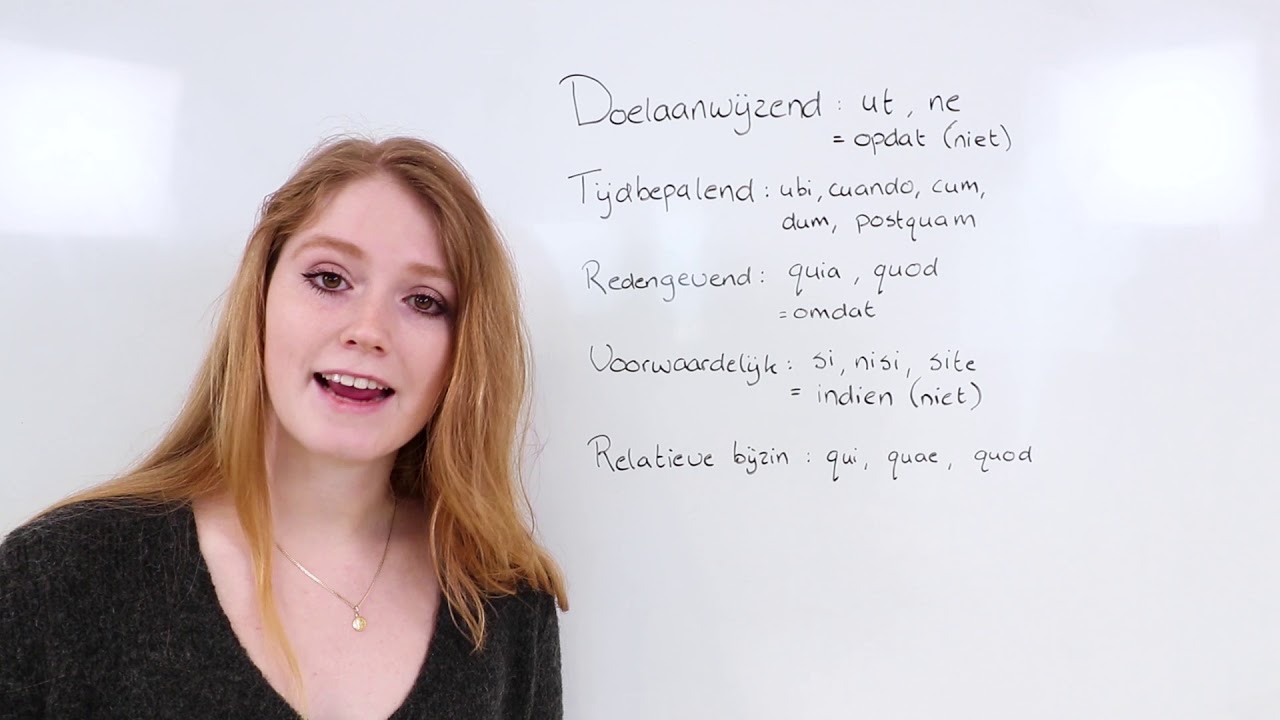 Doelaanwijzend : ut, ne
= opdat (niet)
Tijdbepalend : ubi, cuando, cum,
dum, postquam
Redengevend : quia, quod
= omdat
Voorwaardelijk : si, nisi, site
= indien (niet)
Relatieve bijzin : qui, quae, quod